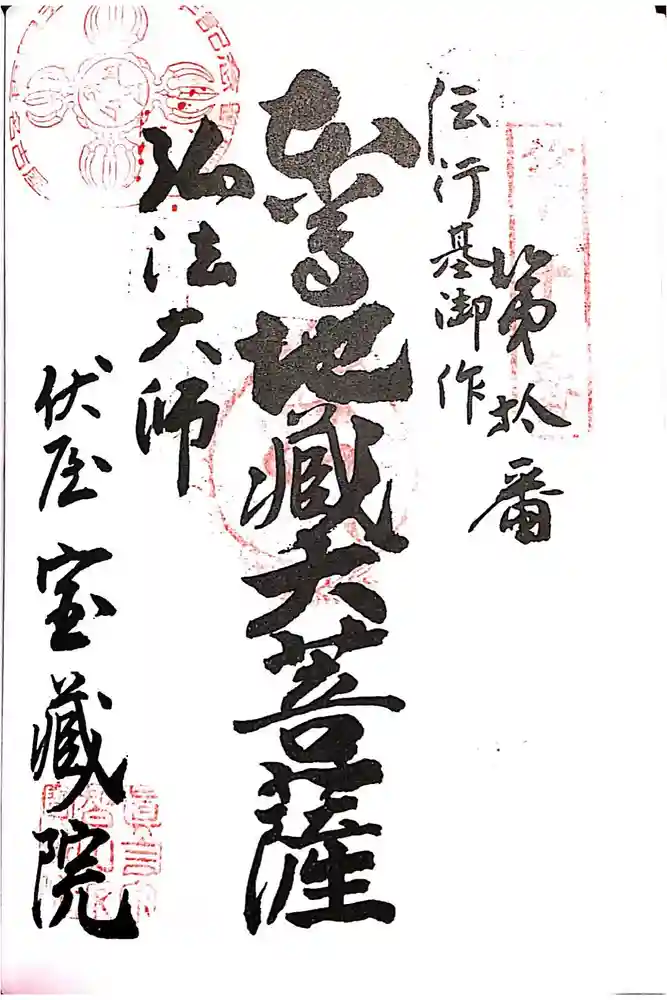 第拾番
伝行基御作
本尊地蔵大菩薩
弘法大師
伏屋 宝蔵院